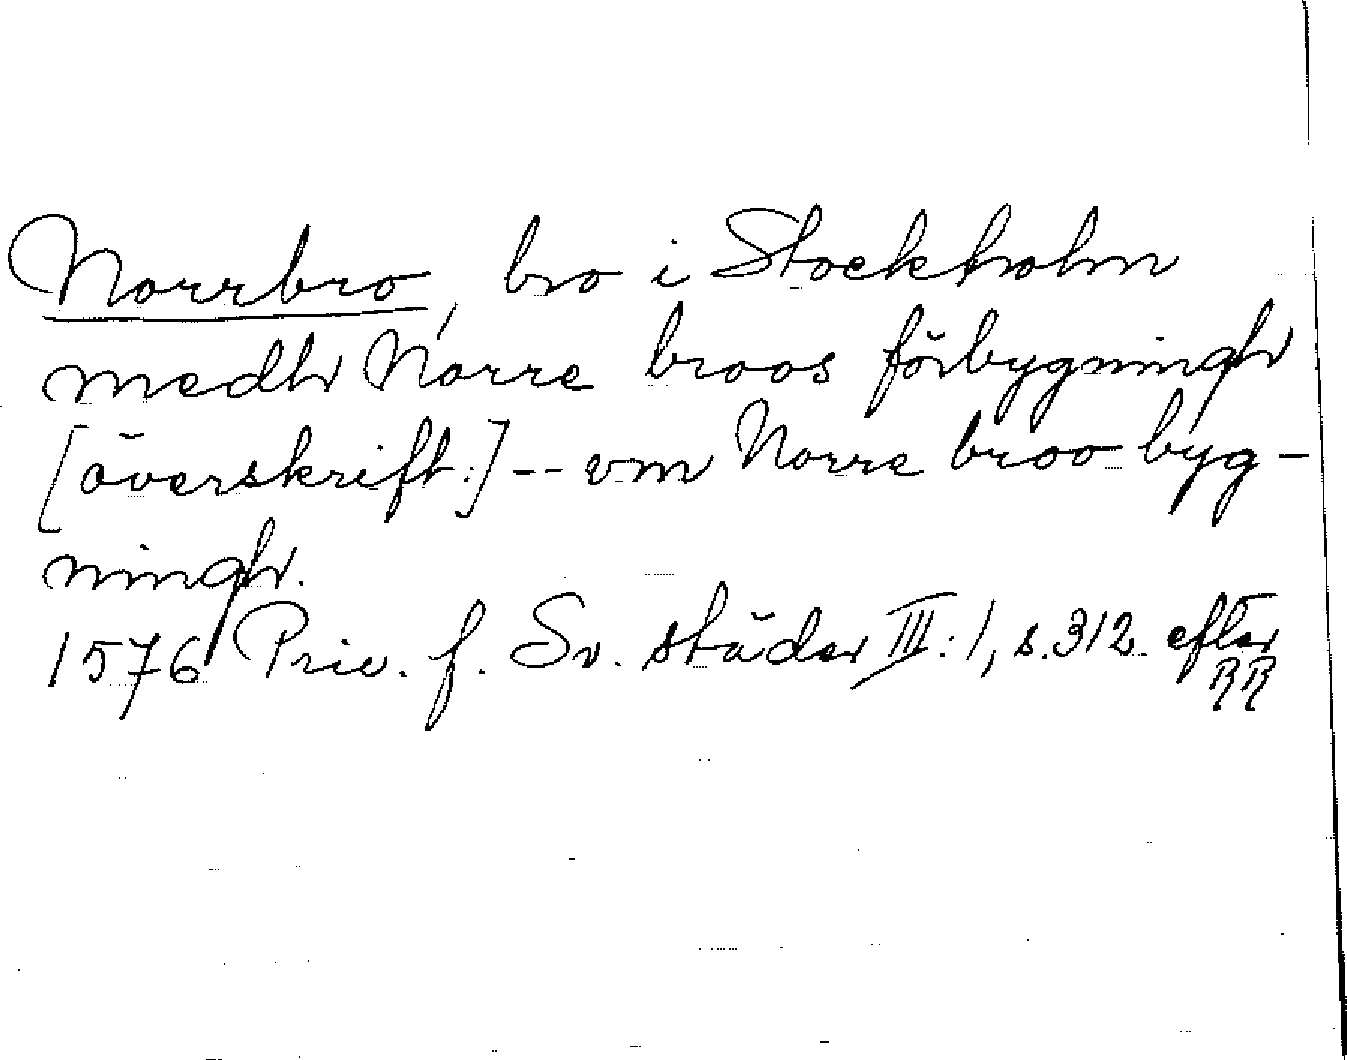 Norrbro, bro i Stockholm
medh Norre broos förbygningh
[överskrift:] -- vm Norre broo byg-
ningh.
1576 Priv. f. Sv. städer III:1, s.312 efter
RR